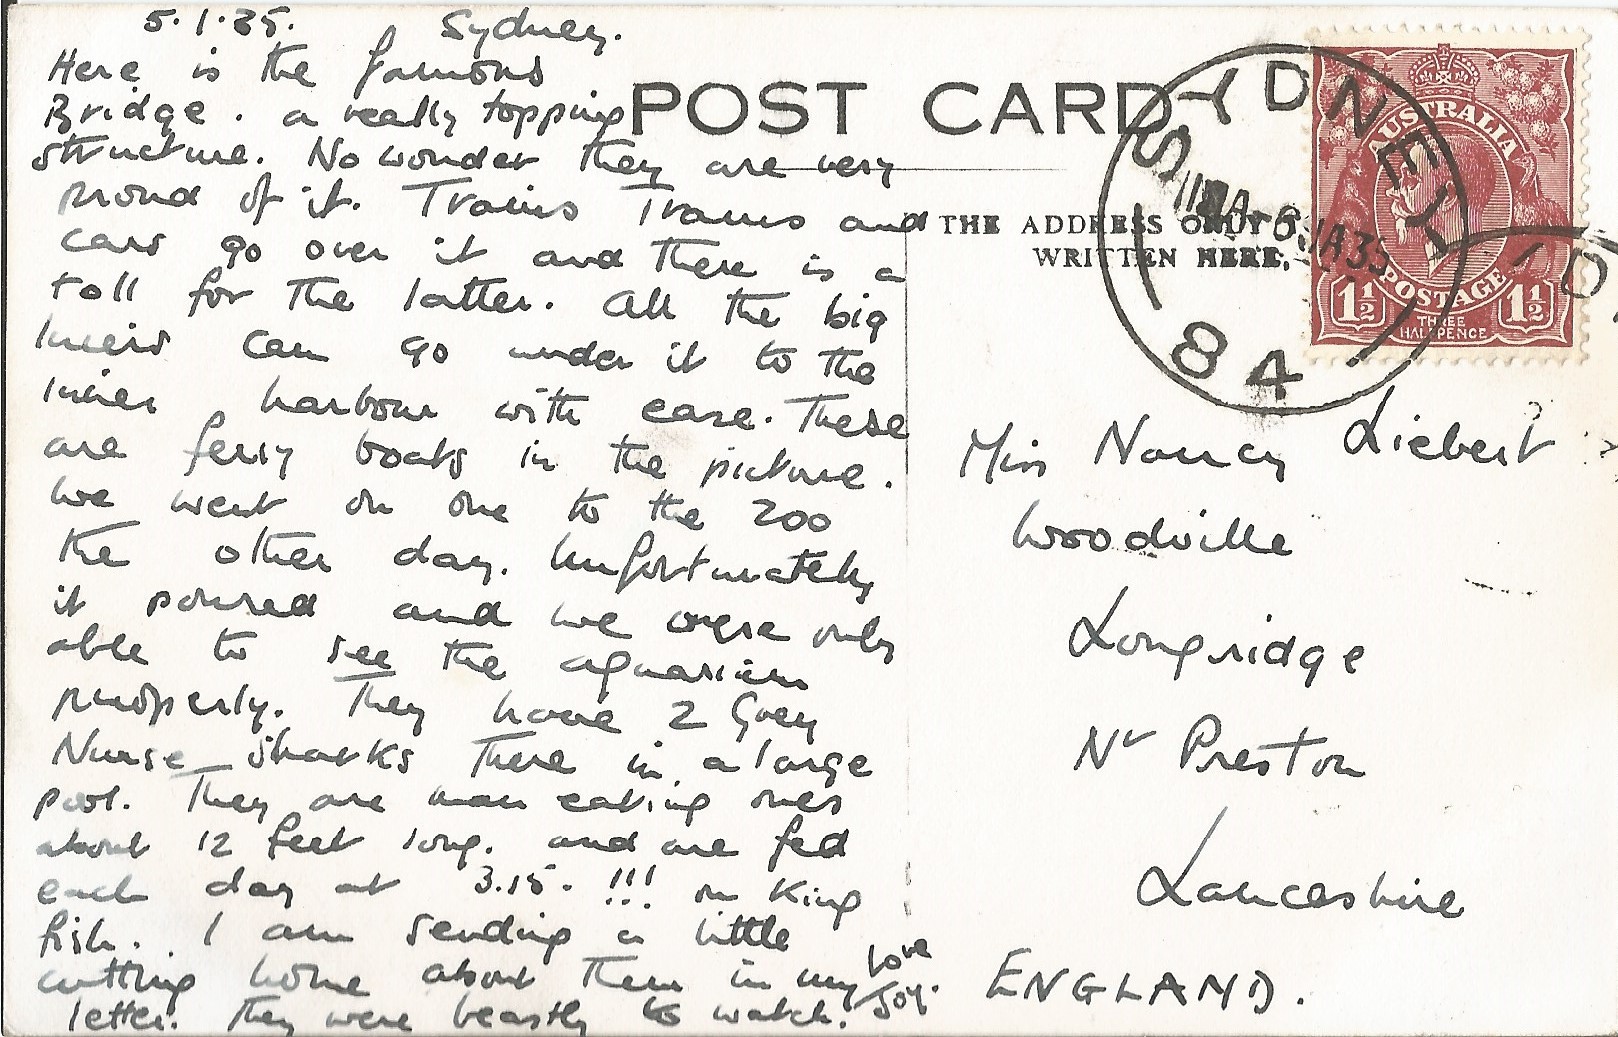 5.1.35. Sydney.
Here is the famous
Bridge. a really topping
structure. No wonder they are very
proud of it. Trains Trams and
cars go over it and there is a
toll for the latter. All the big
liners can go under it to the
inner harbour with ease. These
are ferry boats in the picture.
We went on one to the Zoo
the other day. Unfortunately
it poured and we were only
able to see the aquarium
properly. They have 2 Grey
Nurse sharks there in a large
pool. They are man eating ones
about 12 feet long. and are fed
each day at 3.15. !!! on King
fish. I am sending a little
cutting home about them in my
letter. They were beastly to watch.
Love
Joy.
POST CARD
THE ADDRESS ONLY
WRITTEN HERE.
SYDNEY
JA35
84
AUSTRALIA
POSTAGE
1½ 1½
THREE
HALFPENCE
Miss Nancy Liebert
Woodville
Longridge
Nr Preston
Lancashire
ENGLAND.